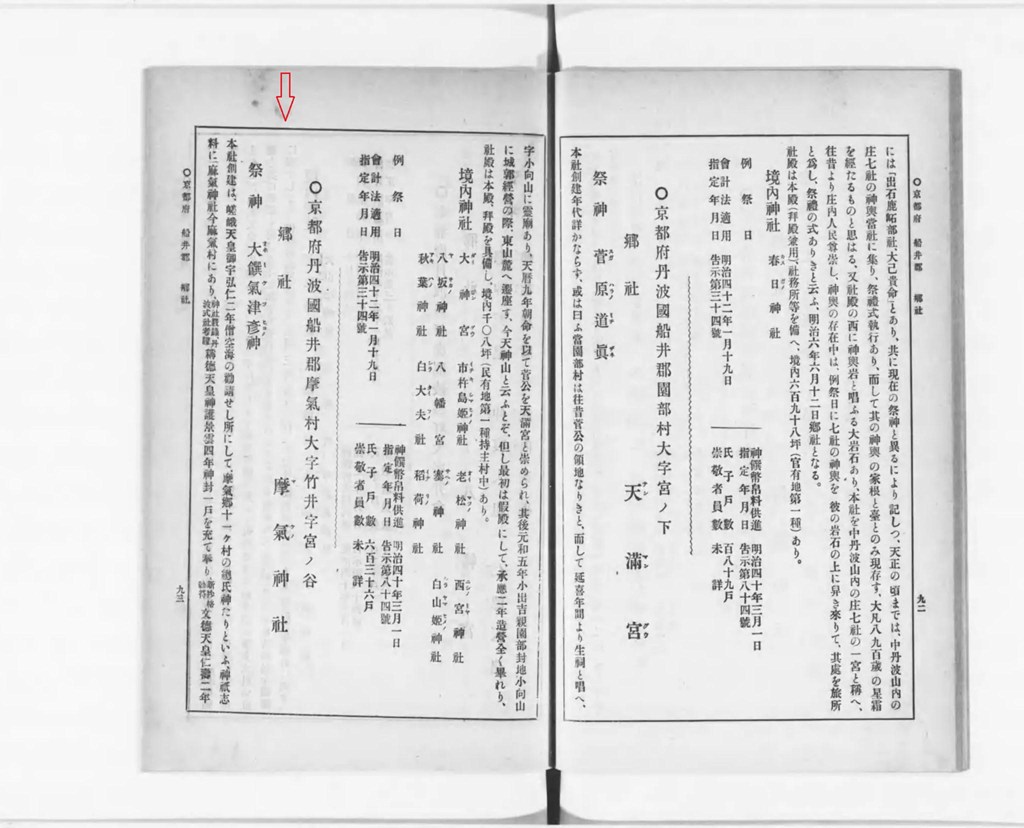 ○京都府 船井郡 郷社
九二
には「出石鹿䂖部社、大己貴命」とあり、共に現在の祭神と異るにより記しつ、天正の頃までは、中丹波山内の
庄七社の神輿當社に集り、祭禮式執行あり、而して其の神輿の家根と臺とのみ現存す、大凡八九百歳の星霜
を經たるものと思はる、又社殿の西に神輿岩と唱ふる大岩石あり、本社を中丹波山内の庄七社の一宮と稱へ、
往昔より庄内人民尊崇し、神輿の存在中は、例祭日に七社の神輿を彼の岩石の上に舁き來りて、其處を旅所
と爲し、祭禮の式ありきと云ふ、明治六年六月十二日郷社となる。
社殿は本殿(拜殿兼用)、社務所等を備へ、境内六百九十八坪(官有地第一種)あり。
境内神社 春日神社
例祭日
會計法適用指定年月日 明治四十二年一月十九日告示第三十四號
神饌幣帛料供進指定年月日 明治四十年三月一日告示第八十四號
氏子戸數 百八十九戸
崇敬者員數 未詳
○京都府丹波國船井郡園部村大字宮ノ下
郷社 天滿宮
祭神 菅原道眞
本社創建年代詳かならず、或は曰ふ當園部村は往昔菅公の領地なりきと、而して延喜年間より生祠と唱へ、
字小向山に靈廟あり、天暦九年朝命を以て菅公を天滿宮と崇められ、其後元和五年小出吉親園部封地小向山
に城郭經營の際、東山麓へ遷座す、今天神山と云ふとぞ、但し最初は假殿にして、承應二年造營全く畢れり、
社殿は本殿、拜殿を具備し、境内千〇八坪(民有地第一種持主村中)あり。
境内神社 大神宮 市杵島姫神社 老松神社 西宮神社
八坂神社 八幡宮 神社 白山姫神社
秋葉神社 白大夫社 稻荷神社
例祭日
會計法適用指定年月日 明治四十二年一月十九日告示第三十四號
神饌幣帛料供進指定年月日 明治四十年三月一日告示第八十四號
氏子戸數 六百三十六戸
崇敬者員數 未詳
○京都府丹波國船井郡摩氣村大字竹井字宮ノ谷
郷社 摩氣神社
祭神 大饌氣津彦神
本社創建は、嵯峨天皇御宇弘仁二年僧空海の勸請せし所にして、摩氣郷十一ヶ村の總氏神たりといふ、神祇志
料に「麻氣神社今麻氣村にあり、神社覈録、丹波式社考證 稱德天皇神護景雲四年神封一戸を充て奉り、新抄格勅符 文德天皇仁壽二年
○京都府 船井郡 郷社
九三